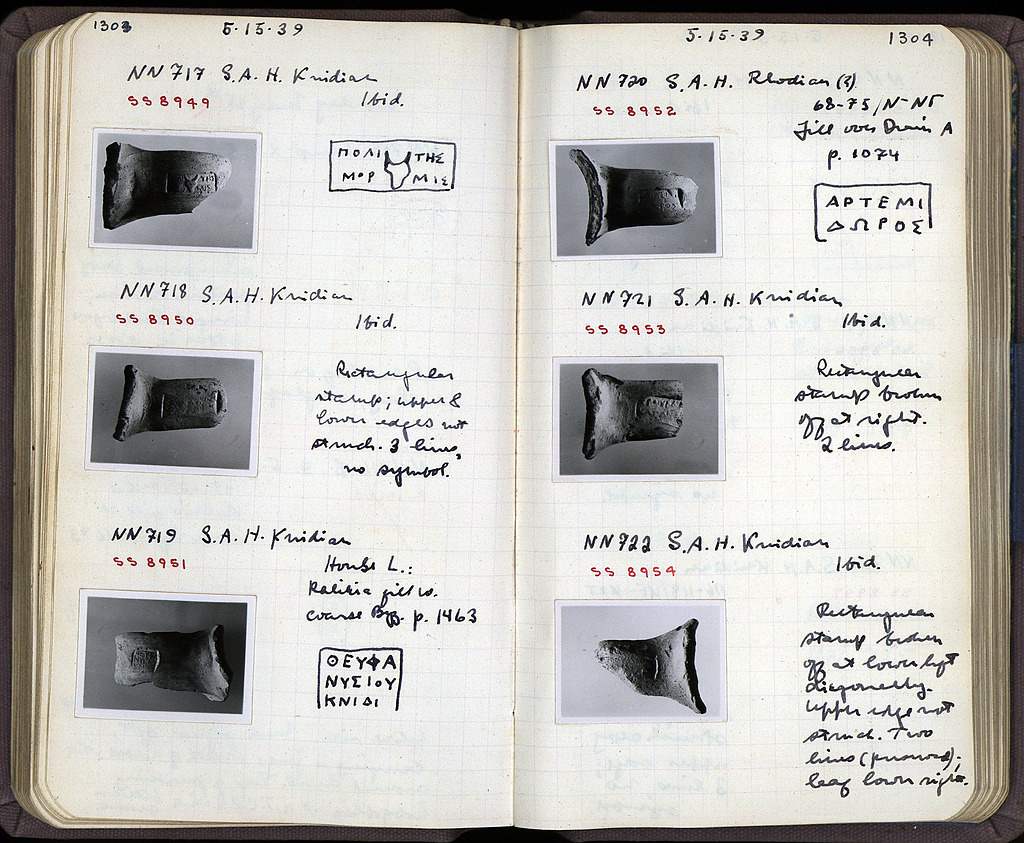 1303 5-15-39
NN 717 S.A.H. Knidian
SS 8949 Ibid.
ΠΟΛΙ ΤΗΣ
ΜΟΡ ΜΙΣ
NN 718 S.A.H. Knidian
SS 8950 Ibid.
Rectangular
stamp; upper &
lower edges not
struck. 3 lines,
no symbol.
NN 719 S.A.H. Knidian
SS 8951 House L.:
fill w.
coarse Byz. p. 1463
ΘΕΥΦΑ
ΝΥΣΙΟΥ
ΚΝΙΔΙ
5-15-39 1304
NN 720 S.A.H. Rhodian (?)
SS 8952 68-75/Ν-ΝΓ
Fill over Drain A
p. 1074
ΑΡΤΕΜΙ
ΔΩΡΟΣ
NN 721 S.A.H. Knidian
SS 8953 Ibid.
Rectangular
stamp broken
off at right.
2 lines.
NN 722 S.A.H. Knidian
SS 8954 Ibid.
Rectangular
stamp broken
off at lower left
diagonally.
Upper edge not
struck. Two
lines (preserved);
leaf lower right.